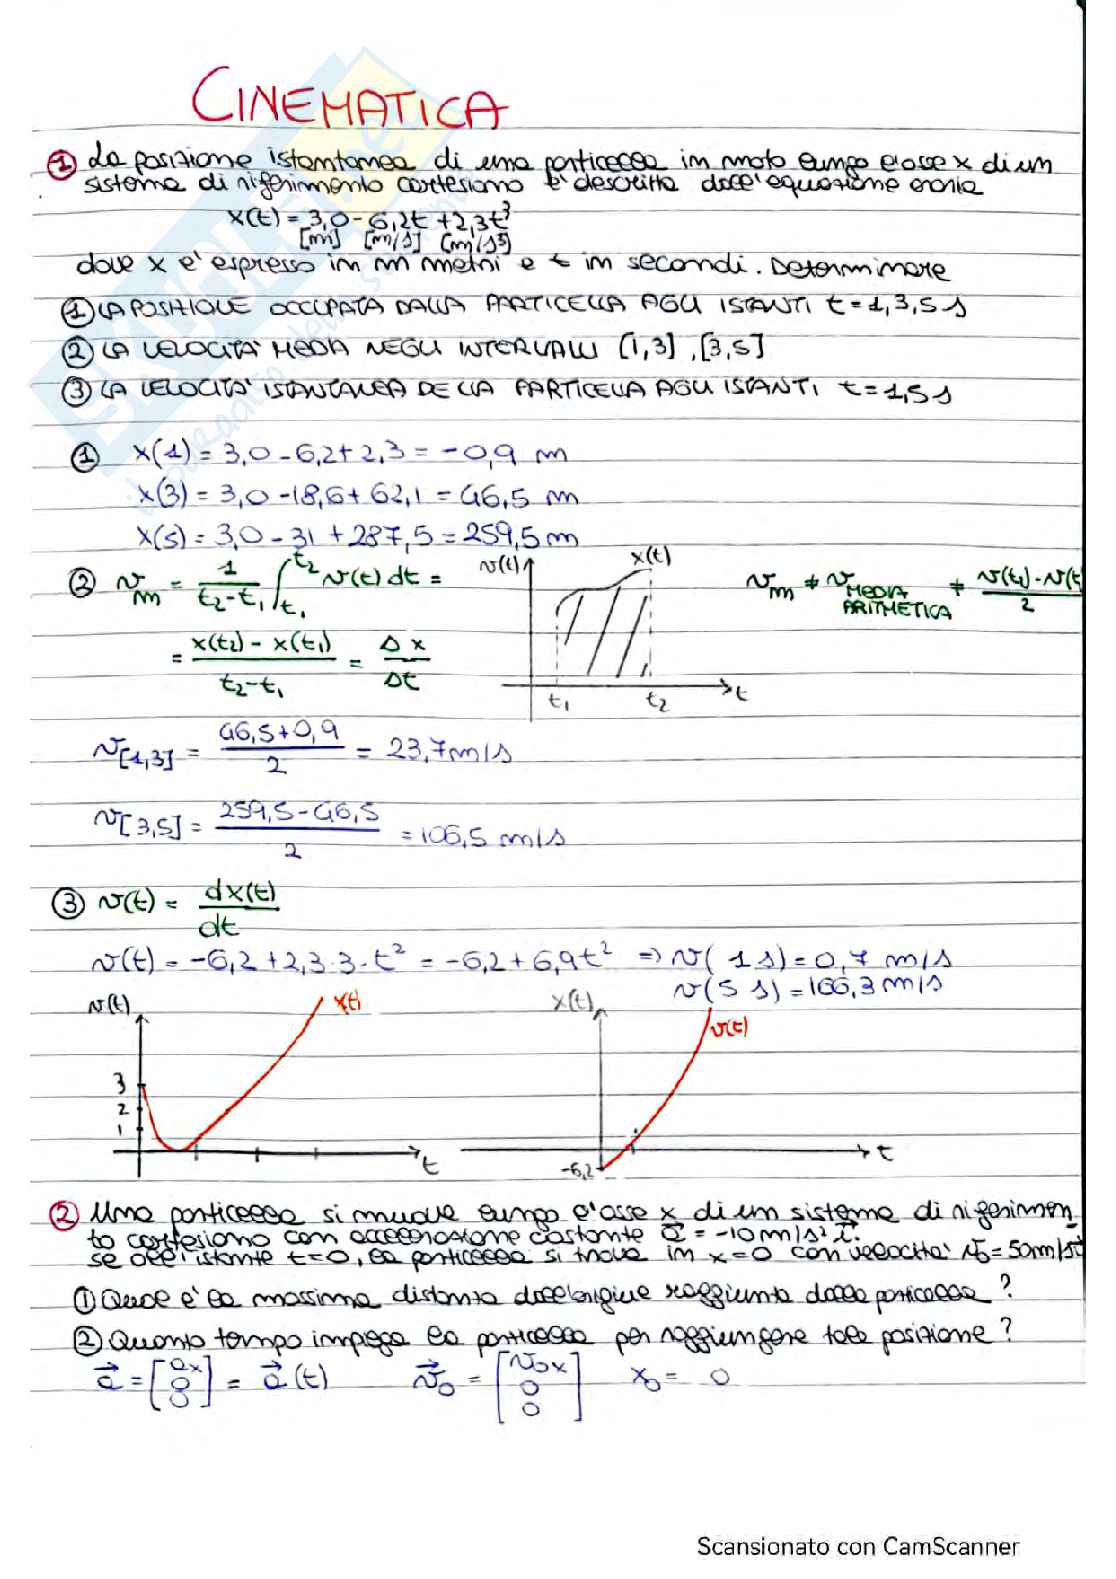 CINEMATICA
① La posizione istantanea di una particella in moto lungo l'asse x di un
sistema di riferimento cartesiano è descritta dall'equazione oraria
x(t) = 3,0 - 6,2t + 2,3t³
[m] [m/s] [m/s³]
dove x è espresso in m metri e t in secondi. Determinare
① LA POSIZIONE OCCUPATA DALLA PARTICELLA AGLI ISTANTI t = 1,3,5 s
② LA VELOCITA' MEDIA NEGLI INTERVALLI [1,3], [3,5]
③ LA VELOCITA' ISTANTANEA DELLA PARTICELLA AGLI ISTANTI t = 1,5 s
① x(1) = 3,0 - 6,2 + 2,3 = -0,9 m
x(3) = 3,0 - 18,6 + 62,1 = 46,5 m
x(5) = 3,0 - 31 + 287,5 = 259,5 m
② v_m = 1/(t₂-t₁) ∫_t₁^t₂ v(t) dt =
v(t) x(t) t₁ t₂ t
v_m ≠ v MEDIA ARITMETICA ≠ v(t₁) - v(t / 2
= x(t₂) - x(t₁) / t₂-t₁ = Δx/Δt
v[1,3] = 46,5+0,9 / 2 = 23,7 m/s
v[3,5] = 259,5-46,5 / 2 = 106,5 m/s
③ v(t) = dx(t)/dt
v(t) = -6,2 + 2,3·3·t² = -6,2 + 6,9t² ⇒ v(1 s) = 0,7 m/s
v(5 s) = 166,3 m/s
v(t) x(t) 3 2 1 t
x(t) v(t) -6,2 t
② Una particella si muove lungo l'asse x di un sistema di riferimen
to cartesiano con accelerazione costante a⃗ = -10 m/s² i⃗.
se all'istante t=0, la particella si trova in x=0 con velocità v₀ = 50m/s i⃗
① Qual è la massima distanza dall'origine raggiunta dalla particella?
② Quanto tempo impiega la particella per raggiungere tale posizione?
a⃗ = [ax 0 0] = a⃗(t) v⃗₀ = [v₀x 0 0] x₀ = 0
Scansionato con CamScanner